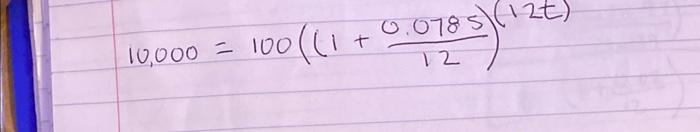 10,000 = 100((1 + 0.0785/12)^(12t)